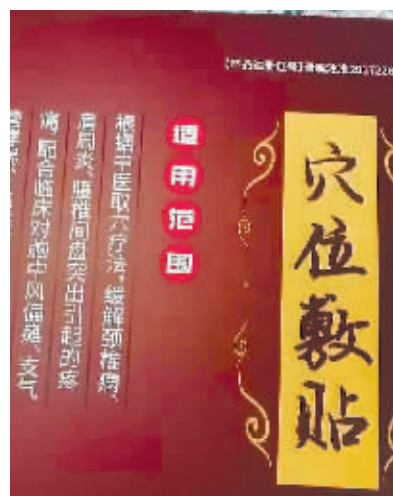 穴位敷贴
适用范围
根据中医取穴疗法,缓解颈椎病、
肩周炎、腰椎间盘突出引起的疼
痛,配合临床对脑中风偏瘫、支气